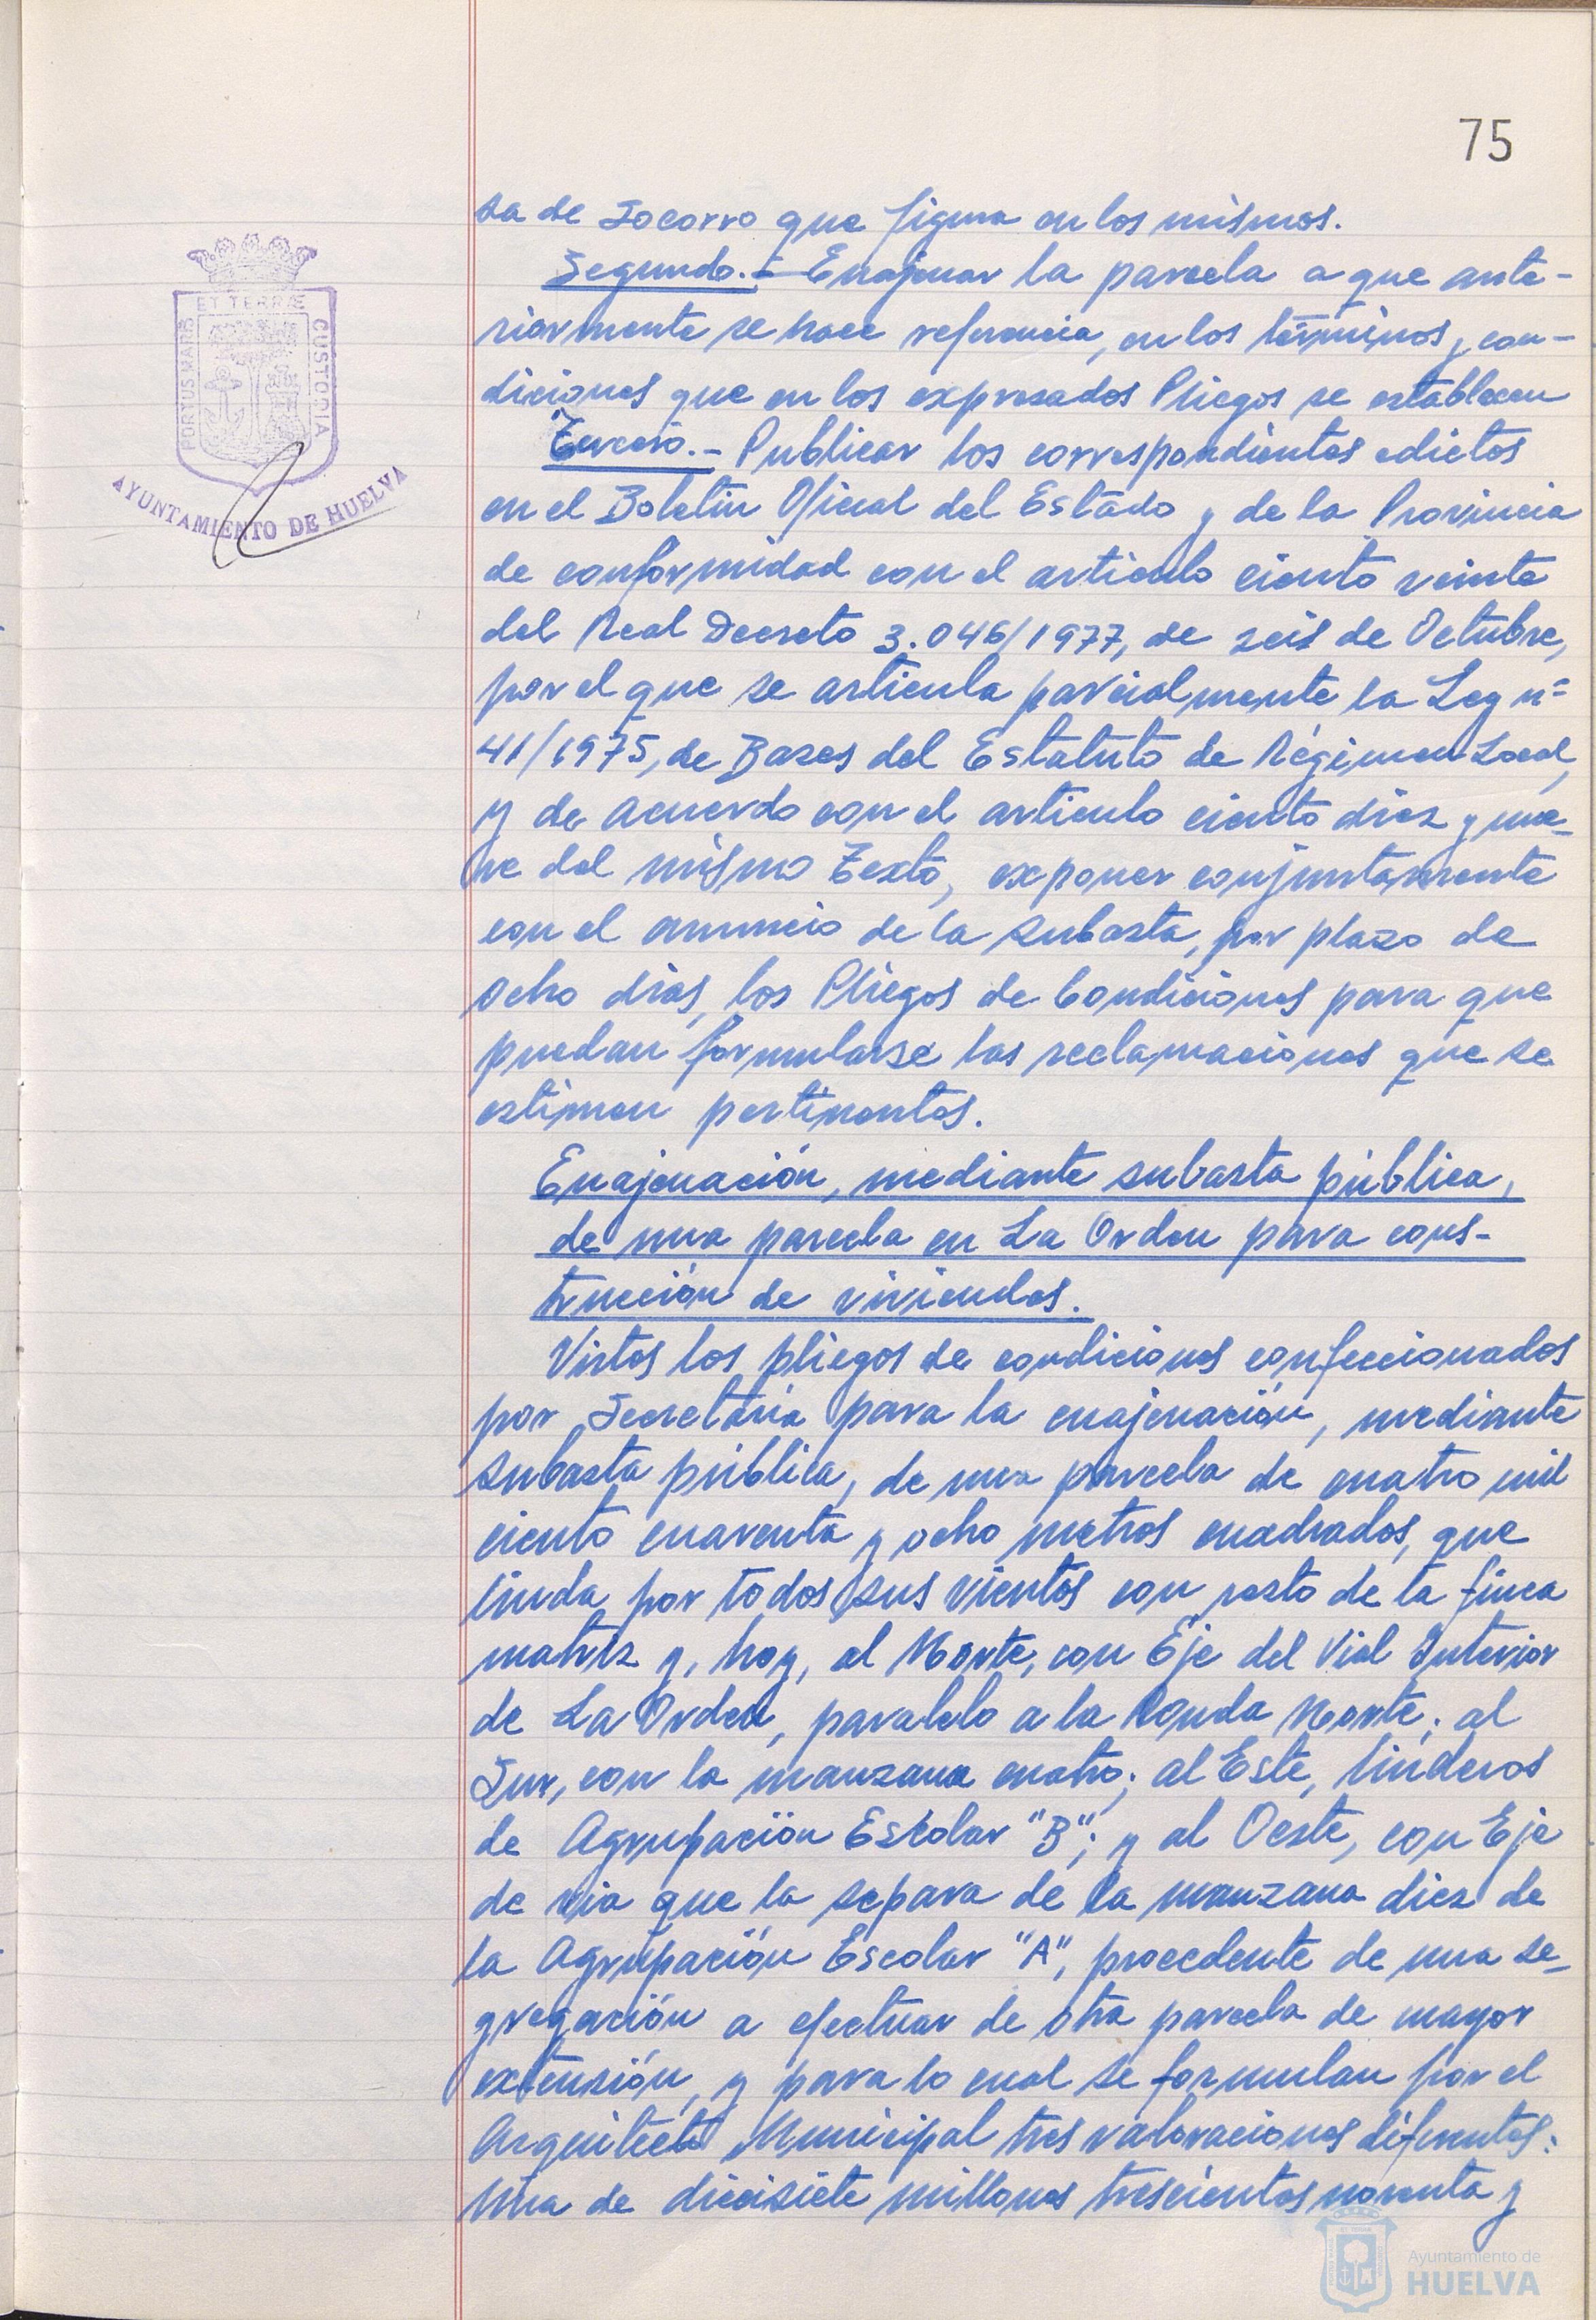 75
sa de Socorro que figura en los mismos.
Segundo.- Enajenar la parcela a que ante-
riormente se hace referencia, en los términos y con-
diciones que en los expresados Pliegos se establecen
Tercero.- Publicar los correspondientes edictos
en el Boletin Oficial del Estado y de la Provincia
de conformidad con el articulo ciento veinte
del Real Decreto 3.046/1977, de seis de Octubre,
por el que se articula parcialmente la Ley nº
41/1975, de Bases del Estatuto de Régimen Local,
y de acuerdo con el articulo ciento diez y nue-
ve del mismo Texto, exponer conjuntamente
con el anuncio de la subasta, por plazo de
ocho dias, los Pliegos de Condiciones para que
puedan formularse las reclamaciones que se
estimen pertinentes.
Enajenación, mediante subasta pública,
de una parcela en La Orden para cons-
trucción de viviendas.
Vistos los pliegos de condiciones confeccionados
por Secretaria para la enajenación, mediante
subasta pública, de una parcela de cuatro mil
ciento cuarenta y ocho metros cuadrados, que
linda por todos sus vientos con resto de la finca
matriz y, hoy, al Norte, con Eje del Vial Interior
de La Orden, paralelo a la Ronda Norte; al
Sur, con la manzana cuatro; al Este, linderos
de Agrupación Escolar "B"; y al Oeste, con Eje
de via que la separa de la manzana diez de
la Agrupación Escolar "A", procedente de una se-
gregación a efectuar de otra parcela de mayor
extensión, y para lo cual se formulan por el
Arquitecto Municipal tres valoraciones diferentes:
una de diecisiete millones trescientos noventa y
PORTUS MARIS ET TERRÆ CUSTODIA
AYUNTAMIENTO DE HUELVA
Ayuntamiento de
HUELVA